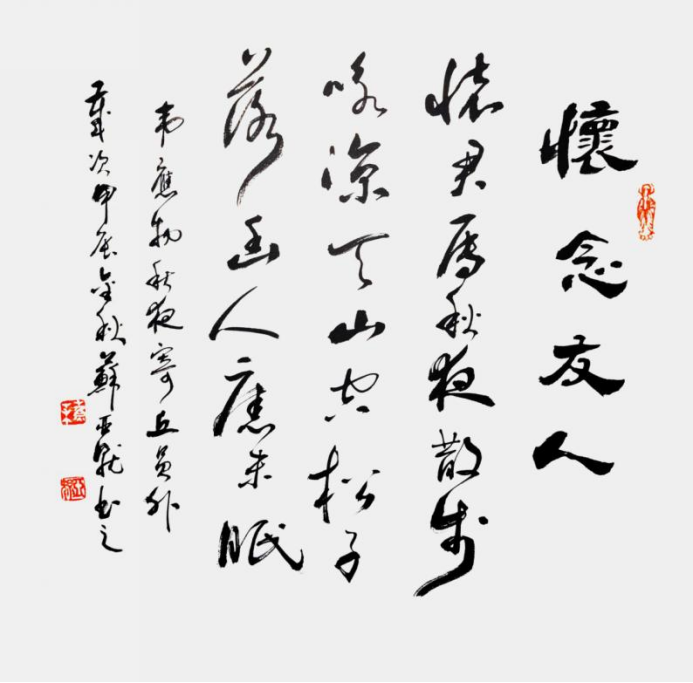 懷念友人
懷君屬秋夜散步
咏涼天山空松子
落幽人應未眠
韋應物秋夜寄丘員外
歲次甲辰金秋蘇亞书之